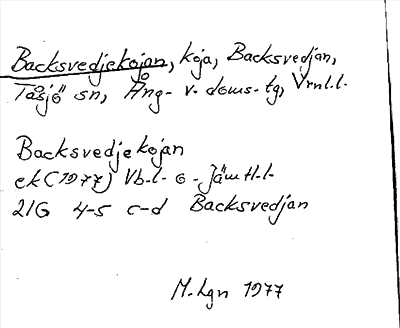 Backsvedjekojan, koja, Backsvedjan,
Tåsjö sn, Ång- v. doms-tg, Vrnl.l.
Backsvedjekojan
ek (1977) Vb.l- o - Jämtl.l.
21G 4-5 c-d Backsvedjan
M.Lgn 1977